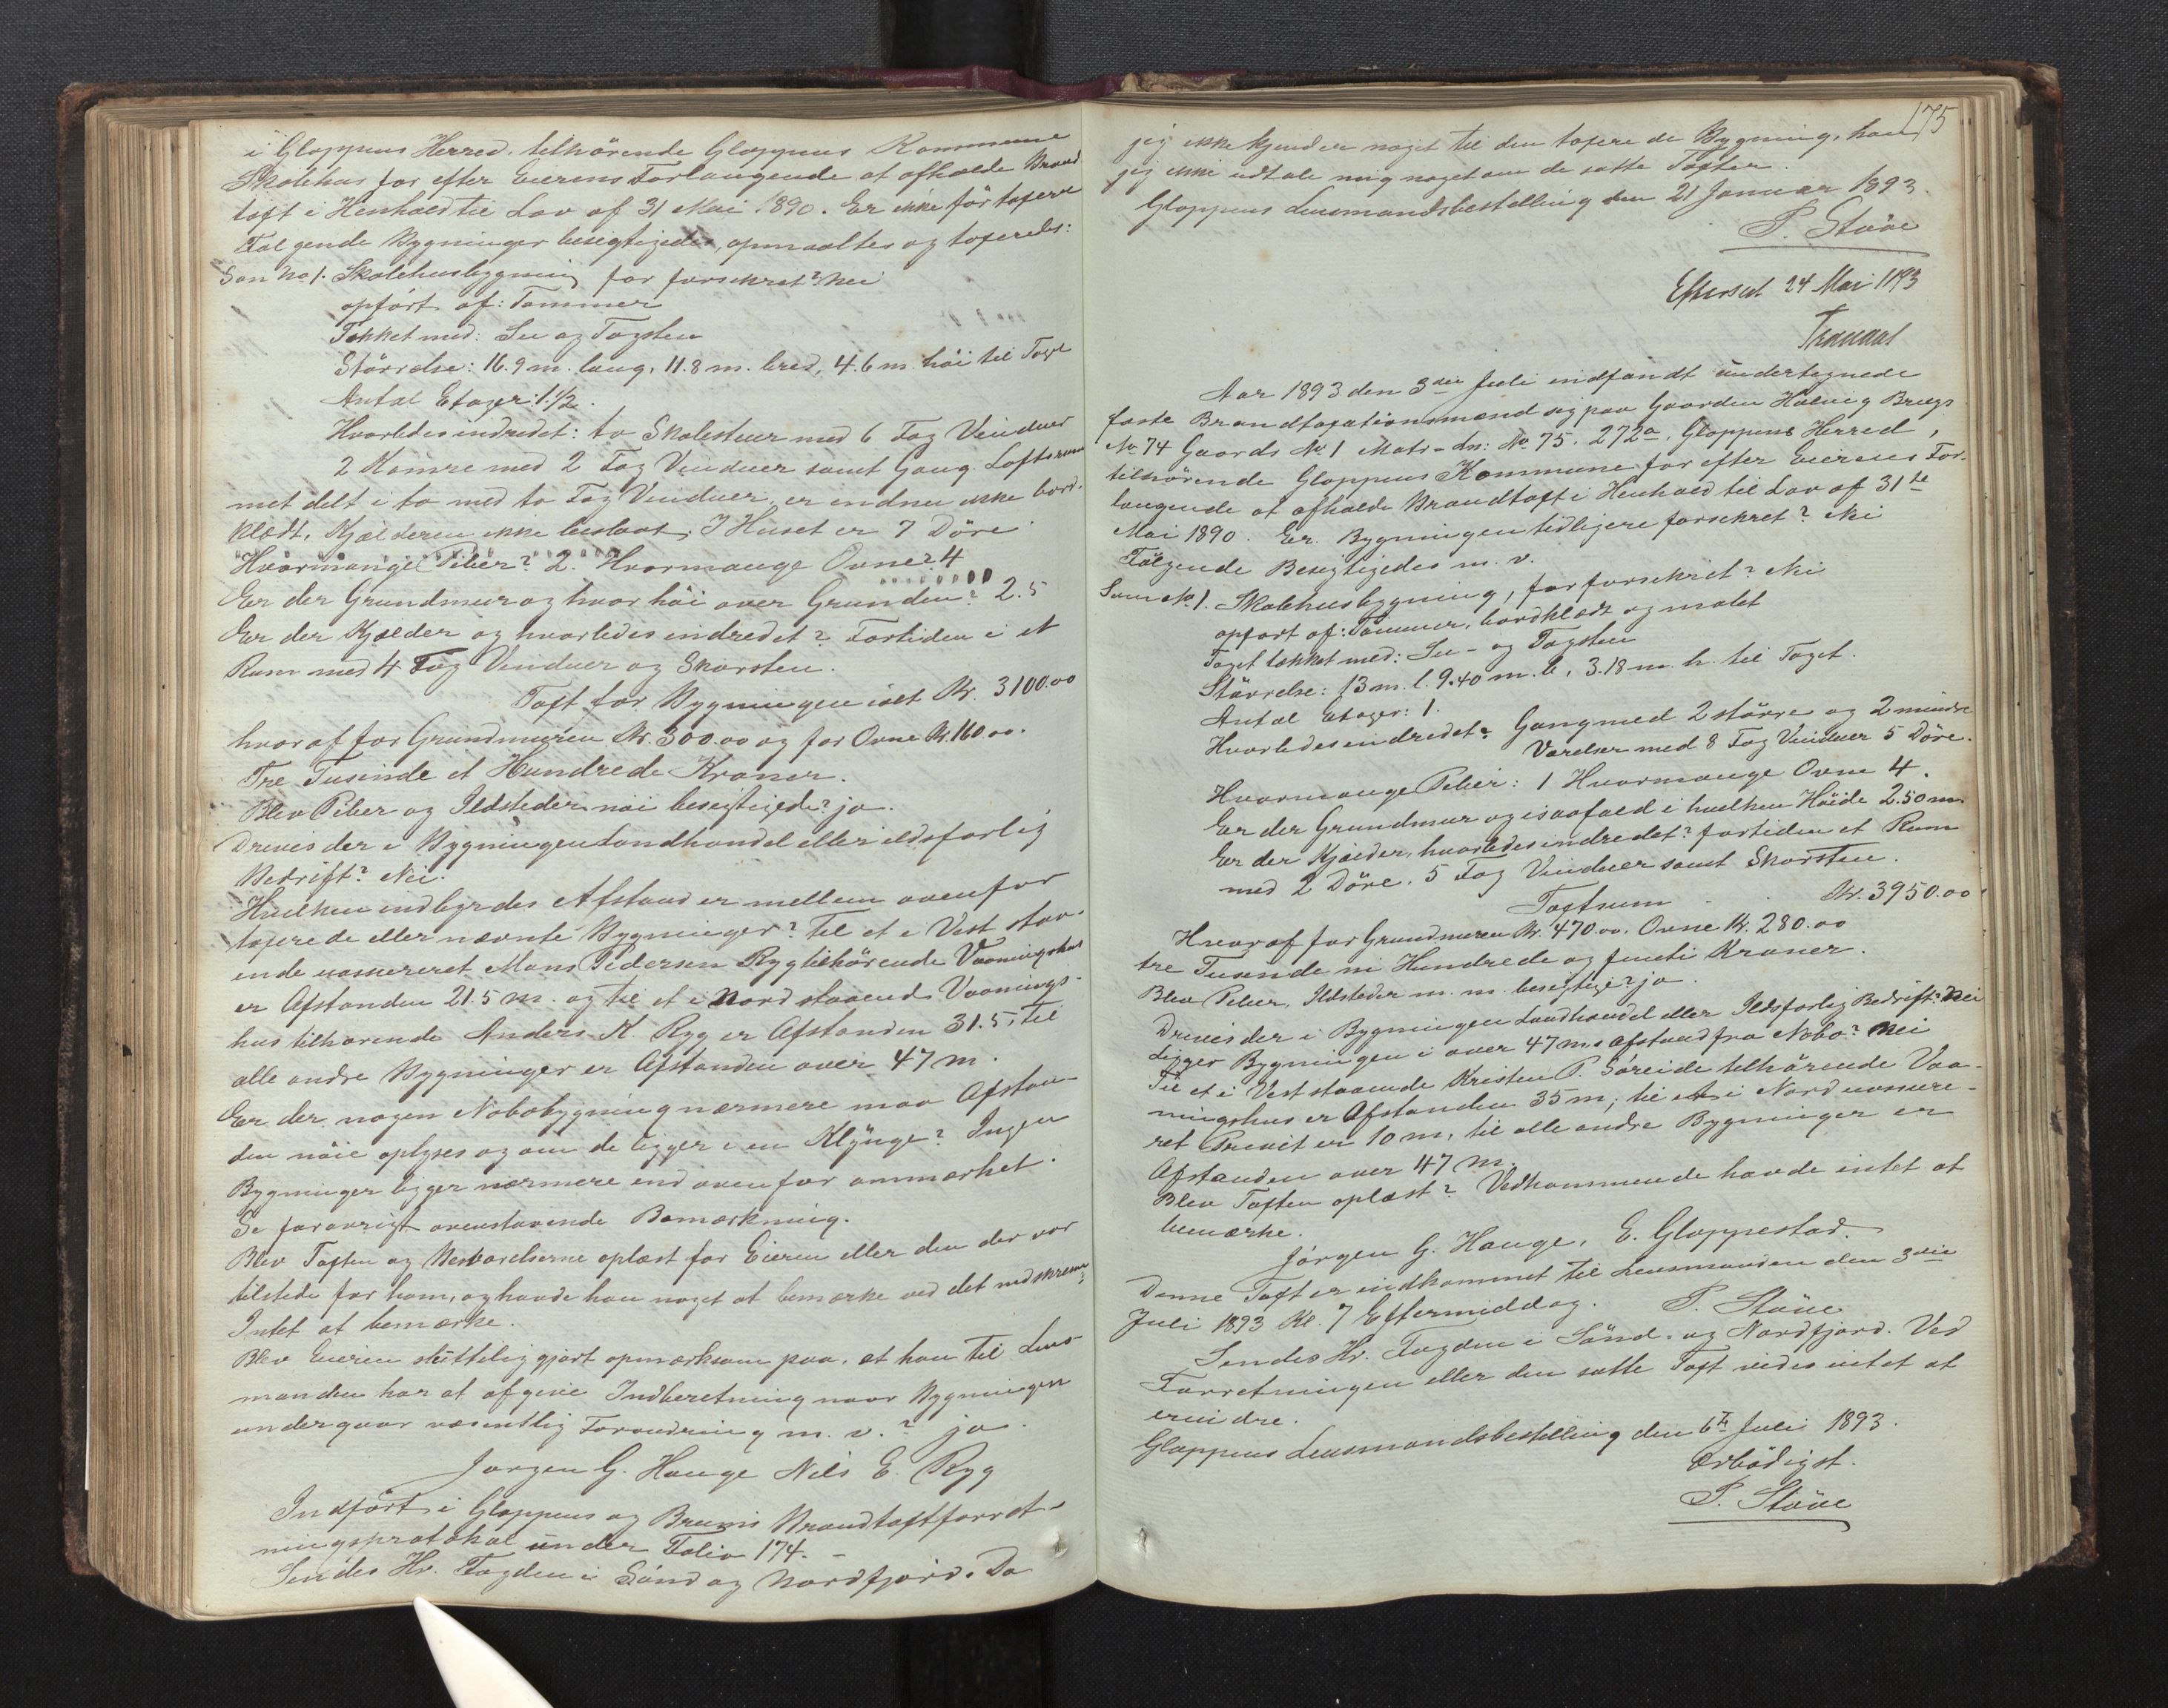 i Gloppens Herred, tilhörende Gloppens Kommune
Skolehus for efter Eierens Forlangende at afholde Brand
taxt i Henhold til Lov af 31 Mai 1890. Er ikke för taxere
Fölgende Bygninger besegtigedes, opmaaltes og taxeredes:
Som No 1. Skolehusbygning for forsikret? Nei
opfört af: Tømmer
Tækket med: Su og Tagsten
Störrelse: 16.9 m. lang, 11.8 m. bred, 4.6 m. höi til Taget
Antal Etager: 1 1/2.
Hvorledes indredet: to Skolestuer med 6 Fag Vinduer
2 Kamre med 2 Fag Vinduer samt Gang. Loftsrum
met delt i to med to Fag Vinduer, er endnu ikke bord-
klædt, Kjælderen ikke beslaat. I Huset er 7 Döre
Hvormange Piber? 2. Hvormange Ovne? 4
Er der Grundmur og hvor höi over Grunden? 2.5
Er der Kjælder og hvorledes indredet? Fortiden i et
Rum med 4 Fag Vinduer og Skorsten.
Taxt for Bygningen ialt Kr. 3100.00
hvoraf for Grundmuren Kr. 300.00 og for Ovne Kr. 160.00.
Tre Tusinde et Hundrede Kroner.
Blev Piber og Ildsteder nöi besigtigede? ja.
Drives der i Bygningen Landhandel eller ildsfarlig
Bedrift? Nei.
Hvilken indbyrdes Afstand er mellem ovenfor
taxerede eller nævnte Bygninger? Til et i Vest staa-
ende uassureret Mons Pedersen Ryg tilhörende Vaaningshus
er Afstanden 21.5 m. og til et i Nord staaende Vaanings-
hus tilhørende Anders K. Ryg er Afstanden 31.5, til
alle andre Bygninger er Afstanden over 47 m.
Er der nogen Nabobygning nærmere maa Afstan-
den nöie oplyses og om de ligger i en Klynge? Ingen
Bygninger ligger nærmere end ovenfor anmærket.
Se forøvrigt ovenstaaende Bemærkning.
Blev Taxten og Besvarelserne oplæst for Eieren eller den der var
tilstede for ham, og havde han noget at bemærke ved det nedskrevne?
Intet at bemærke.
Blev Eieren skriftlig gjort opmærksom paa, at han til Lens-
manden har at afgive Indberetning naar Bygningen
undergaar væsentlig Forandring m. v.? ja.
Jørgen G. Hauge Nils E. Ryg
Indfört i Gloppens og Breims Brandtaxtforret-
ningsprotokol under Folio 174. –
Sendes Hr. Fogden i Sönd og Nordfjord. Da
175
jeg ikke kjender noget til den taxerede Bygning, kan
jeg ikke udtale mig noget om de satte Taxter.
Gloppens Lensmandsbestilling den 21 Januar 1893.
P. Stöve
Efterseet 24 Mai 1893
Aar 1893 den 3die Juli indfandt undertegnede
faste Brandtaxationsmænd sig paa Gaarden Haueg Brugs
No 74 Gaards No 1 Matr-Ln: No 75. 272a, Gloppens Herred,
tilhörende Gloppens Kommune for efter Eierens For-
langende at afholde Brandtaxt i Henhold til Lov af 31te
Mai 1890. Er Bygningen tidligere forsikret? Nei
Fölgende Besigtigedes m. v.
Som No 1. Skolehusbygning, för forsikret? Nei
opført af: Tömmer, bordklædt og malet
Taget tækket med: Su- og Tagsten
Störrelse: 13 m. l. 9.40 m. b., 3.18 m. h. til Taget.
Antal Etager: 1.
Hvorledes indredet? Gang med 2 större og 2 mindre
Værelser med 8 Fag Vinduer 5 Döre.
Hvormange Piber: 1 Hvormange Ovne 4.
Er der Grundmur og isaafald i hvilken Höide 2.50 m.
Er der Kjælder, hvorledes indredet? fortiden et Rum
med 2 Döre, 5 Fag Vinduer samt Skorsten.
Taxtsum Kr. 3950.00
Hvoraf for Grundmuren Kr. 470.00, Ovne Kr. 280.00
tre Tusende ni Hundrede og femti Kroner.
Blev Piber, Ildsteder m. m. besigtiget? ja.
Drives der i Bygningen Landhandel eller Ildsfarlig Bedrift? Nei
Ligger Bygningen i over 47 m. afstand fra Nabo? Nei
Til et i Vest staaende Kristen P. Söreide tilhörende Vaa-
ningshus er Afstanden 35 m, til et i Nord uassure-
ret Privit er 10 m, til alle andre Bygninger er
Afstanden over 47 m.
Blev Taxten oplæst? Vedkommende havde intet at
bemærke.
Jörgen G. Hauge, E. Gloppestad.
Denne Taxt er indkommet til Lensmanden den 3die
Juli 1893 Kl. 7 Eftermiddag. P. Stöve
Sendes Hr. Fogden i Sönd- og Nordfjord. Ved
Forretningen eller den satte Taxt vides intet at
erindre.
Gloppens Lensmandsbestilling den 6te Juli 1893.
Ærbödigst.
P. Stöve